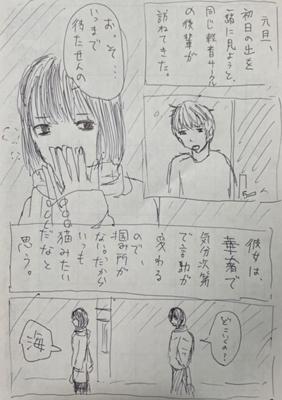 元旦、
初日の出を
一緒に見ようと、
同じ軽音サークル
の後輩が
訪ねてきた。
お。そ…
いつまで
待たせんの
彼女は、
華奢で
気分次第
で言動が
変わる
ので、
掴み所が
ない。だから
いつも
猫みたい
だなと
思う。
どこいくの？
海